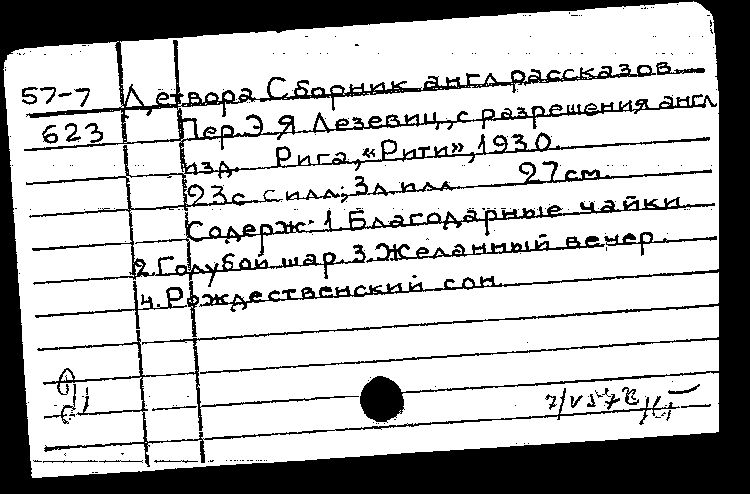 57-7 Детвора Сборник англ рассказов
623 Пер. Э Я Лезевиц, с разрешения англ
изд. Рига, «Рити», 1930.
23с с илл; 3л илл 27 см.
Содерж: 1. Благодарные чайки
2. Голубой шар. 3. Желанный вечер.
4. Рождественский сон.